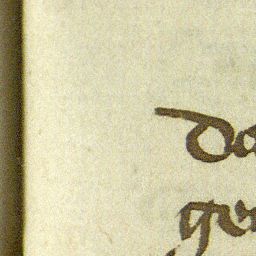 da
ge